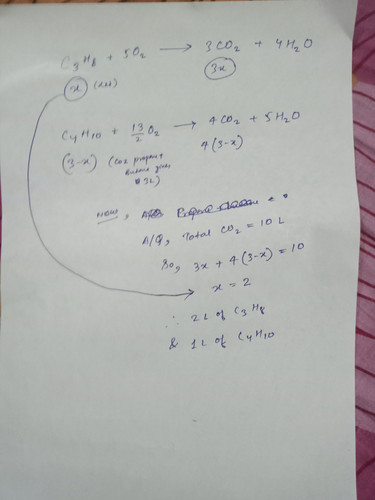 C3H8 + 5O2 → 3CO2 + 4H2O
x (let) 3x
C4H10 + 13/2 O2 → 4CO2 + 5H2O
(3-x) (coz propane + 4(3-x)
butane gives
3L)
now,
A/Q, Total CO2 = 10 L
So, 3x + 4(3-x) = 10
x = 2
∴ 2L of C3H8
& 1L of C4H10